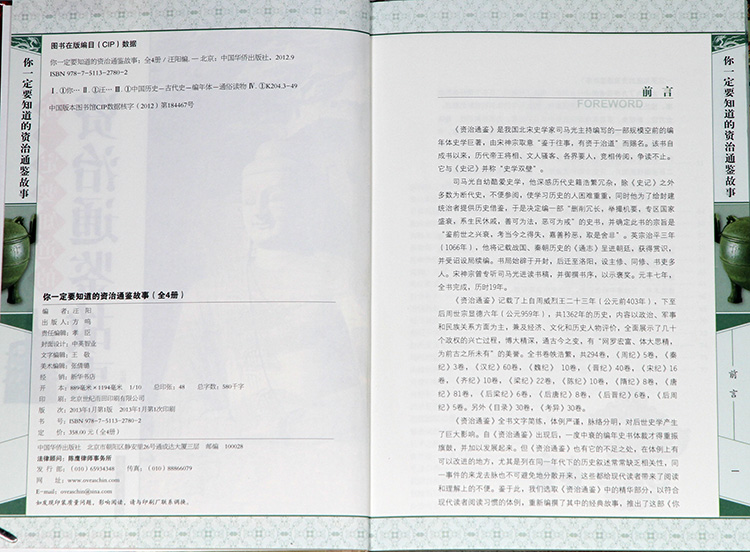 你一定要知道的资治通鉴故事
图书在版编目(CIP)数据
你一定要知道的资治通鉴故事:全4册/汪阳编.—北京:中国华侨出版社,2012.9
ISBN 978-7-5113-2780-2
Ⅰ.①你… Ⅱ.①汪… Ⅲ.①中国历史-古代史-编年体-通俗读物 Ⅳ.①K204.3-49
中国版本图书馆CIP数据核字(2012)第184467号
你一定要知道的资治通鉴故事(全4册)
编 者:汪 阳
出 版 人:方 鸣
责任编辑:李 臣
封面设计:中英智业
文字编辑:王 敬
美术编辑:张倩倩
经 销:新华书店
开 本:889毫米×1194毫米 1/10 总印张:48 总字数:580千字
印 刷:北京世纪百田印刷有限公司
版 次:2013年1月第1版 2013年1月第1次印刷
书 号:ISBN 978-7-5113-2780-2
定 价:358.00元(全4册)
中国华侨出版社 北京市朝阳区静安里26号通成达大厦三层 邮编 100028
法律顾问:陈鹰律师事务所
发 行 部:(010)65934348 传真:(010)88866079
网 址:www.oveaschin.com
E-mail:oveaschin@sina.com
如发现印装质量问题,影响阅读,请与印刷厂联系调换。
前 言
FOREWORD
《资治通鉴》是我国北宋史学家司马光主持编写的一部规模空前的编
年体史学巨著,由宋神宗取意“鉴于往事,有资于治道”而赐名。该书自
成书以来,历代帝王将相、文人骚客、各界要人,竞相传阅,争读不止。
它与《史记》并称“史学双璧”。
司马光自幼酷爱史学,他深感历代史籍浩繁冗杂,除《史记》之外
多数为断代史,不便参阅,使学习历史的人困难重重,同时他为了给封建
统治者提供历史借鉴,于是决定编一部“删削冗长,举撮机要,专区国家
盛衰,系生民休戚,善可为法,恶可为戒”的史书,并确定此书的宗旨是
“鉴前世之兴衰,考当今之得失,嘉善矜恶,取是舍非”。英宗治平三年
(1066年),他将记载战国、秦朝历史的《通志》呈进朝廷,获得赏识,
并受诏设局续编。书局始辟于开封,后迁至洛阳,设主修、同修、书吏多
人。宋神宗曾专听司马光进读书稿,并御撰书序,以示褒奖。元丰七年,
全书完成,历时19年。
《资治通鉴》记载了上自周威烈王二十三年(公元前403年),下至
后周世宗显德六年(公元959年),共1362年的历史,内容以政治、军事
和民族关系方面为主,兼及经济、文化和历史人物评价,全面展示了几十
个政权的兴亡过程,博大精深,通古今之变,有“网罗宏富、体大思精,
为前古之所未有”的美誉。全书卷帙浩繁,共294卷,《周纪》5卷,《秦
纪》3卷,《汉纪》60卷,《魏纪》10卷,《晋纪》40卷,《宋纪》16
卷,《齐纪》10卷,《梁纪》22卷,《陈纪》10卷,《隋纪》8卷,《唐纪》
81卷,《后梁纪》6卷,《后唐纪》8卷,《后晋纪》6卷,《后周
纪》5卷。另外《目录》30卷,《考异》30卷。
《资治通鉴》全书文字简练,体例严谨,脉络分明,对后世史学产生
了巨大影响。自《资治通鉴》出现后,一度中衰的编年史书体裁才得重振
旗鼓,并加以发展起来。但《资治通鉴》也有它的不足之处,在体例上有
可以改进的地方,尤其是列在同一年代下的历史叙述常常缺乏相关性,同
一事件的来龙去脉也不可避免地分散开来,这些都给现代读者带来了阅读
和理解上的不便。鉴于此,我们选取《资治通鉴》中的精华部分,以符合
现代读者阅读习惯的体例,重新编撰了其中的经典故事,推出了这部《你
你一定要知道的资治通鉴故事
前言
一